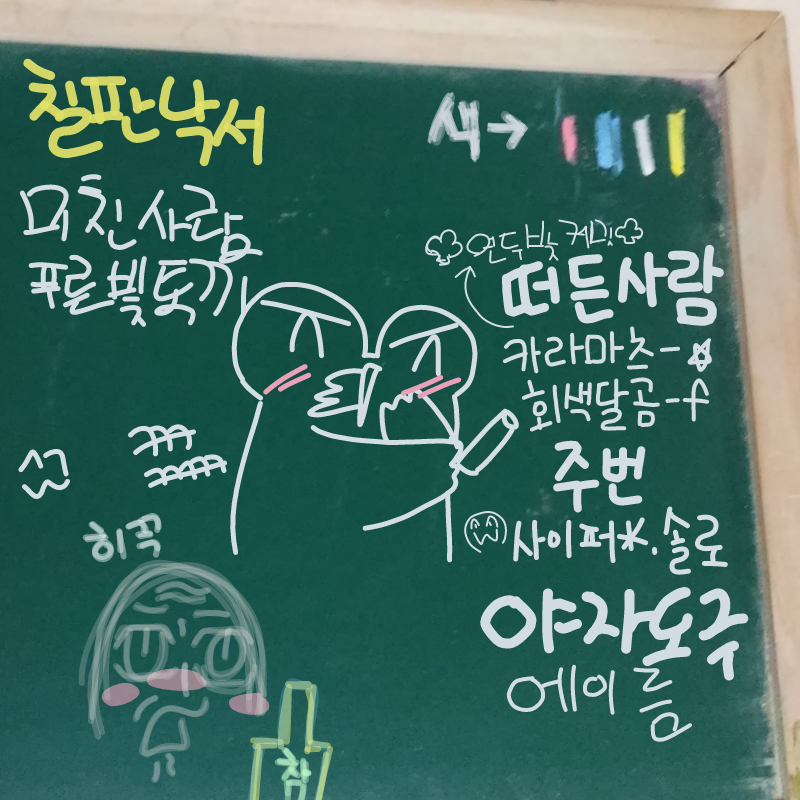 칠판낙서
색→
미친사람
푸른빛토끼
연두빛케미
떠든사람
카라마츠-☆
회색달곰-f
ㅋㅋㅋ
ㅋㅋㅋㅋㅋ
주번
사이퍼*.솔로
히끅
야자도주
에이름
참